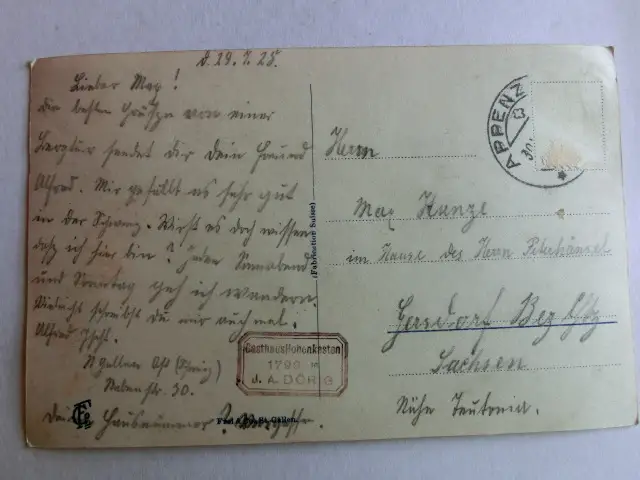 d. 29. 7. 25.
Lieber Max!
Die besten Grüsse von einer
Bergtur sendet dir dein Freund
Alfred. Mir gefällt es sehr gut
in der Schweiz. Wirst es doch wissen
daß ich hier bin? Jeden Sonnabend
und Sonntag geh ich wandern.
Vielleicht schreibst Du mir auch mal.
Alfred
St. gallen Ost (Schweiz)
str. 30.
Hausnummer
(Fabrication Suisse)
Gasthaus Hohenkasten
1799 m
J. A. DÖRIG
St. Gallen
APPENZ
Herrn
Max Kunze
im Hause des Herrn
Gersdorf Bez.
Sachsen
Nähe Teutonia.